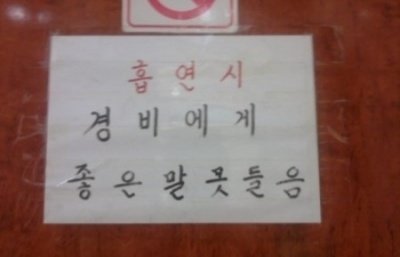 흡연시
경비에게
좋은말못들음